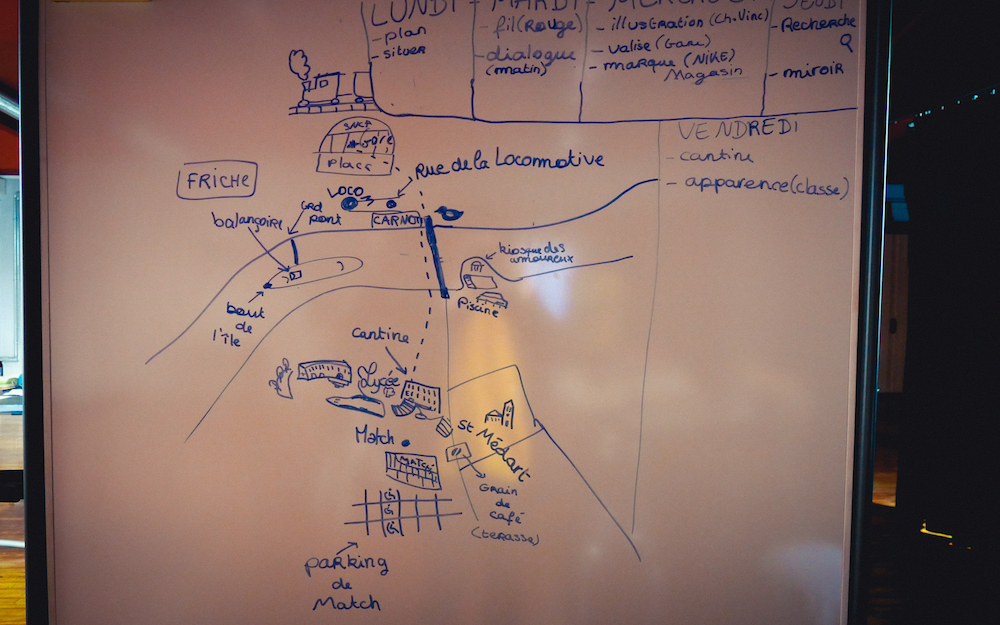 LUNDI - MARDI - 
- plan
- situer
- fil (ROUGE)
- dialogue
(matin)
- illustration (Ch. Vinc)
- valise (Gare)
- marque (NIKE)
Magasin
JEUDI
- Recherche
Q
- miroir
VENDREDI
- cantine
- apparence (classe)
SNCF
Gare
Place
Rue de la Locomotive
FRICHE
LOCO
CARNOT
balançoire
GRD
pont
kiosque des
amoureux
Piscine
bout
de
l'île
Cantine
Lycée
St Médart
Match
MATCH
GRAIN
de
café
(terasse)
parking
de
Match